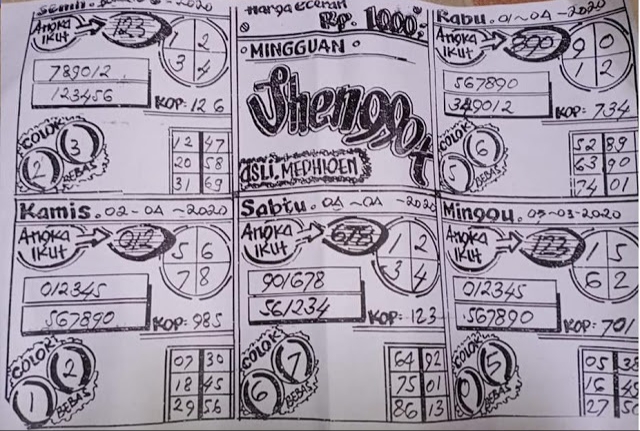 Senin
ANGKA IKUT
123
1 2
3 4
789012
123456
KOP: 126
COLOK BEBAS
2 3
12 47
20 58
31 69
Harga eceran
Rp. 1000,-
MINGGUAN
Shenggot
ASLI. MEDHIOEN
Rabu. 01-04-2020
ANGKA IKUT
890
9 0
1 2
567890
349012
KOP: 734
COLOK BEBAS
5 6
52 89
63 90
74 01
Kamis. 02-04-2020
ANGKA IKUT
012
5 6
7 8
012345
567890
KOP: 985
COLOK BEBAS
1 2
07 30
18 45
29 56
Sabtu. 04-04-2020
ANGKA IKUT
678
1 2
3 4
901678
561234
KOP: 123
COLOK BEBAS
6 7
64 92
75 01
86 13
Minggu. 05-03-2020
ANGKA IKUT
123
1 5
6 2
012345
567890
KOP: 701
COLOK BEBAS
0 5
05
16
27